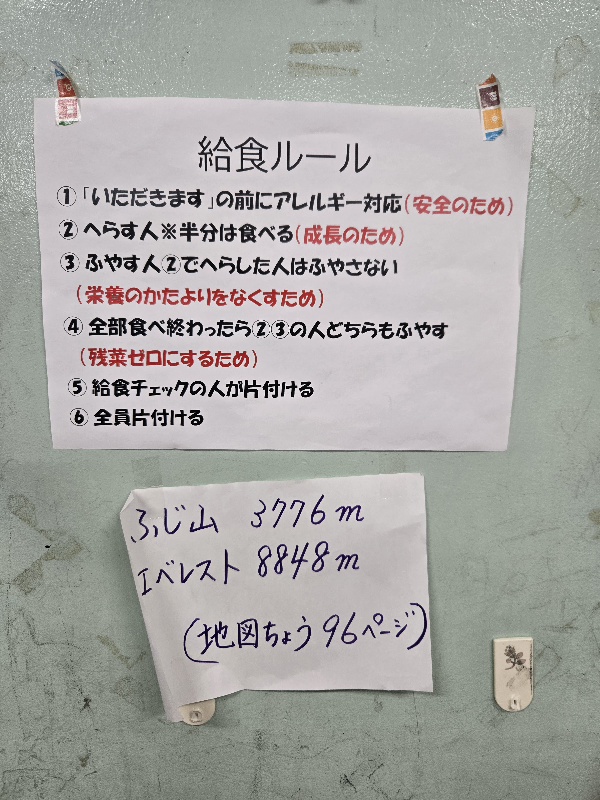 給食ルール
①「いただきます」の前にアレルギー対応(安全のため)
②へらす人※半分は食べる(成長のため)
③ふやす人②でへらした人はふやさない
(栄養のかたよりをなくすため)
④全部食べ終わったら②③の人どちらもふやす
(残菜ゼロにするため)
⑤給食チェックの人が片付ける
⑥全員片付ける
ふじ山 3776m
エベレスト 8848m
(地図ちょう96ページ)